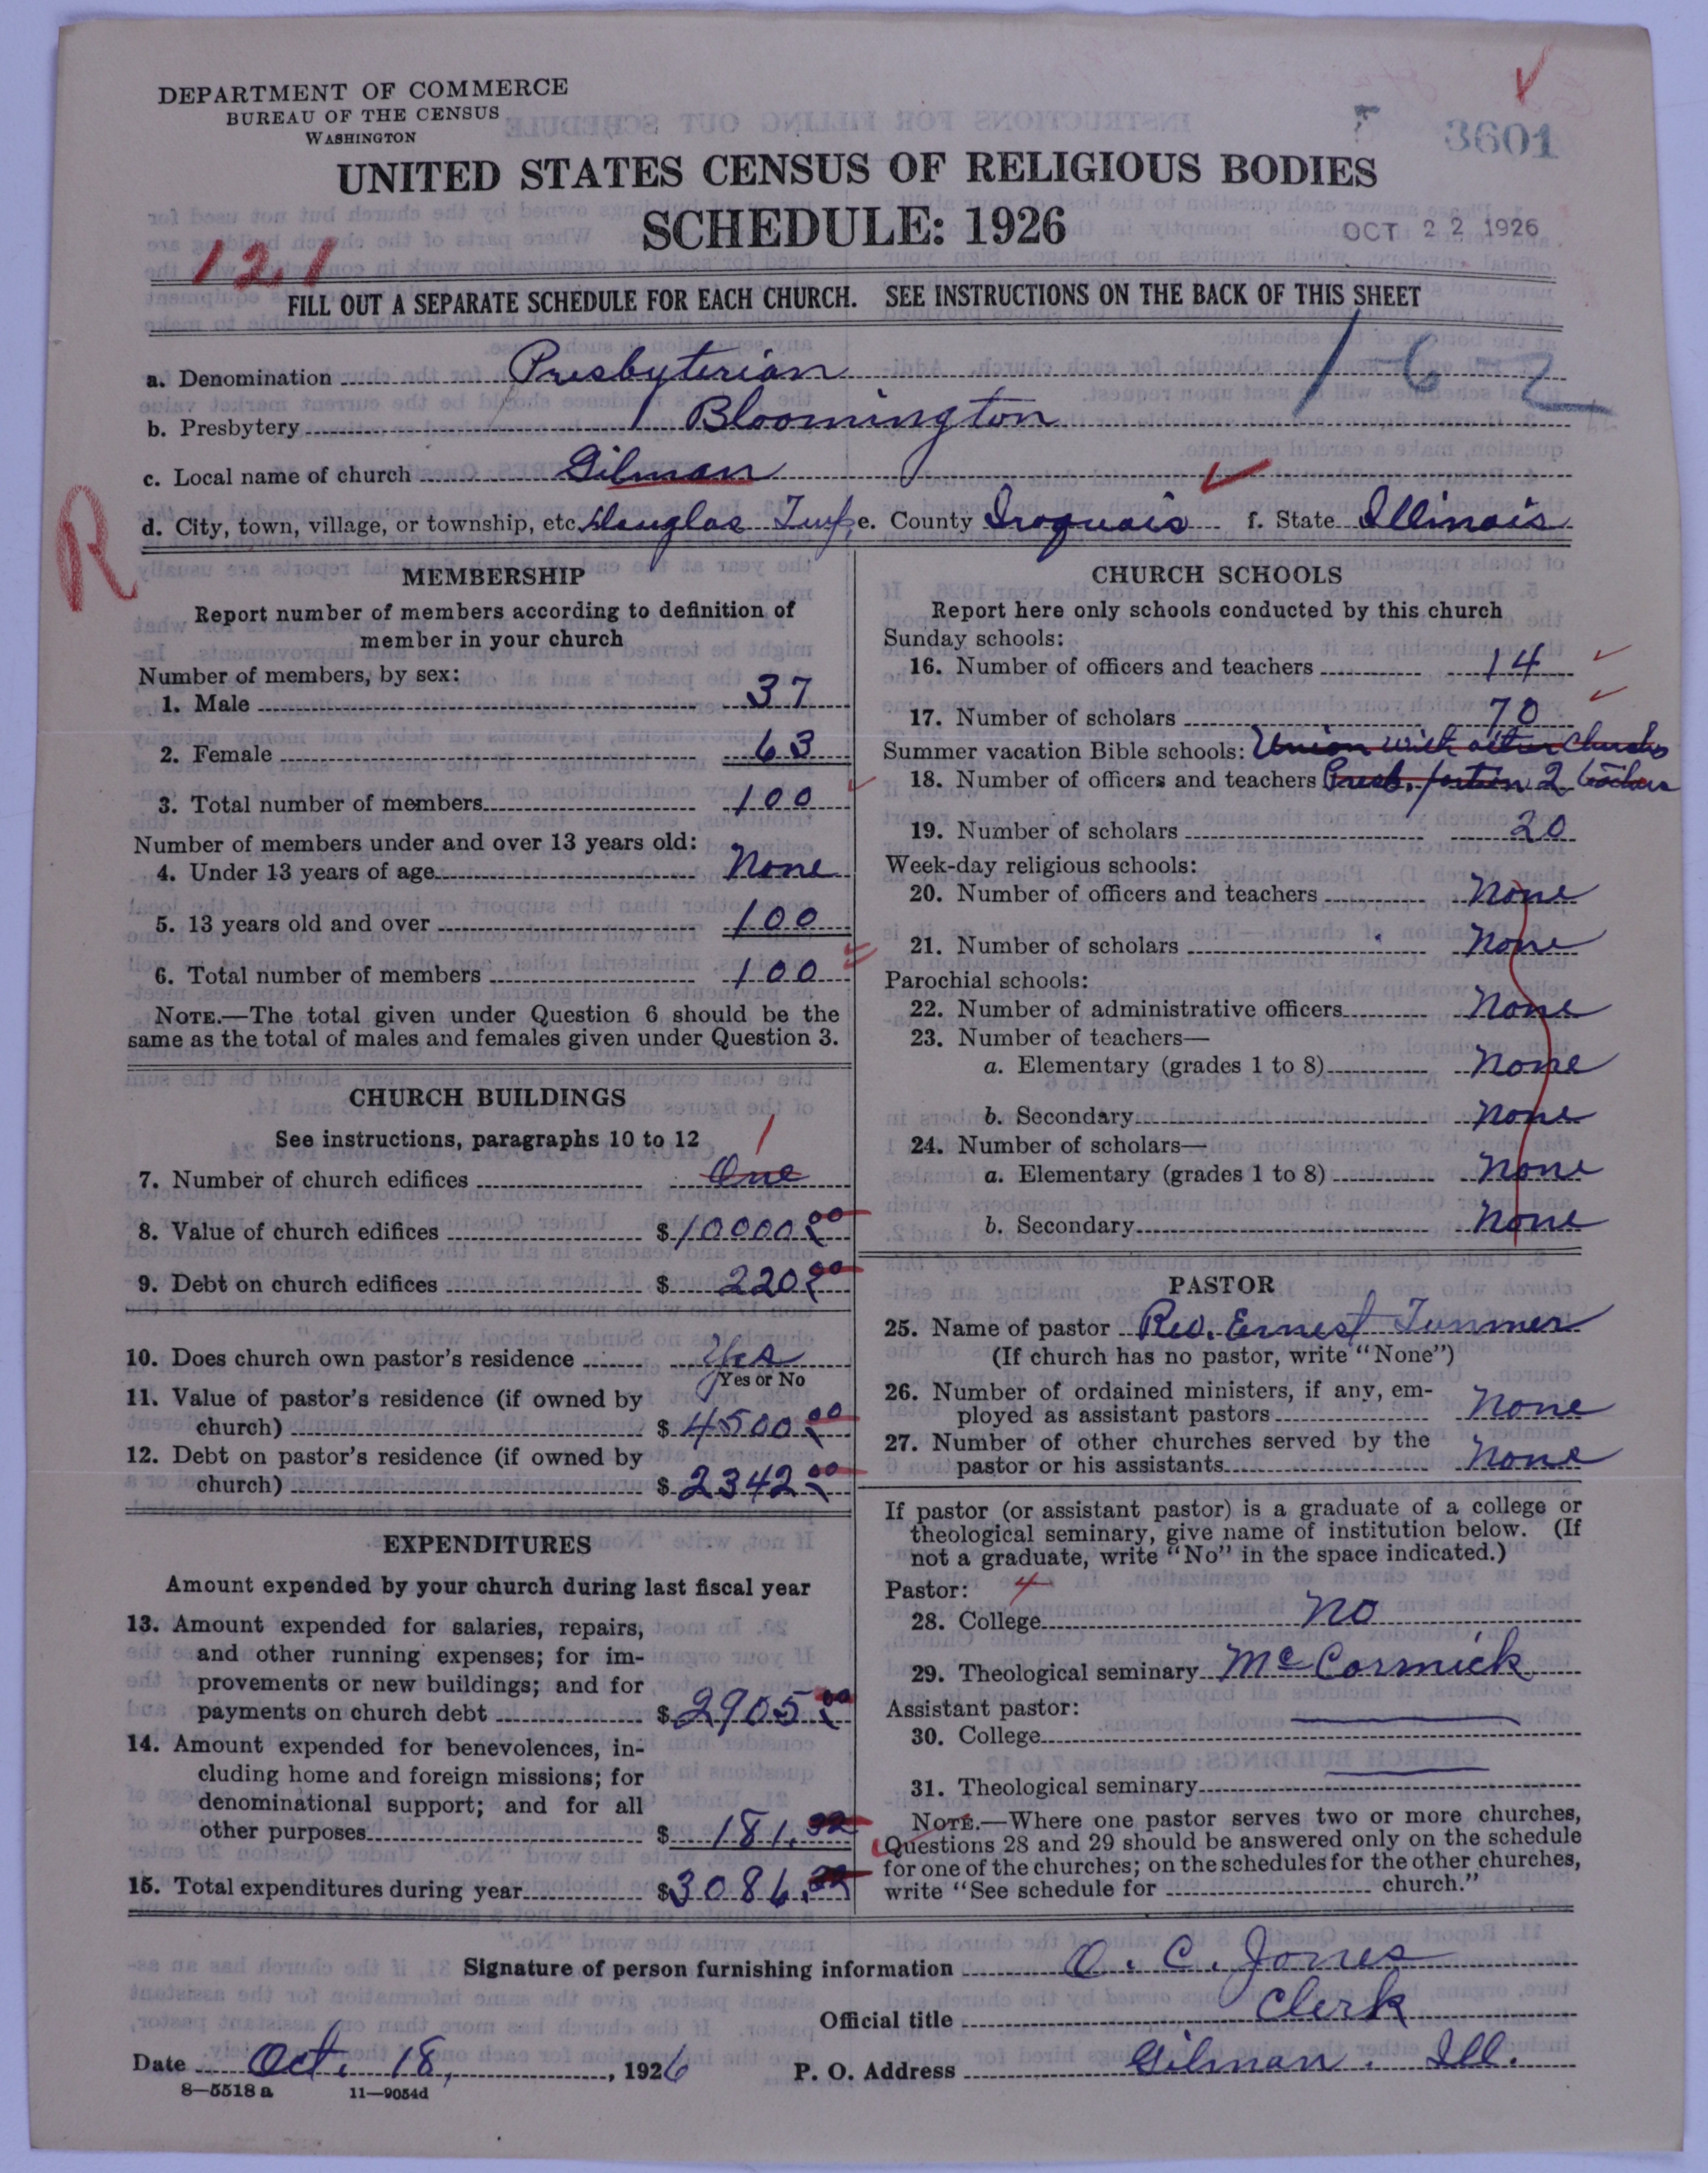 DEPARTMENT OF COMMERCE
BUREAU OF THE CENSUS
WASHINGTON
3601
UNITED STATES CENSUS OF RELIGIOUS BODIES
SCHEDULE: 1926
OCT 22 1926
121
FILL OUT A SEPARATE SCHEDULE FOR EACH CHURCH. SEE INSTRUCTIONS ON THE BACK OF THIS SHEET
1-6-2
a. Denomination Presbyterian
b. Presbytery Bloomington
c. Local name of church Gilman
d. City, town, village, or township, etc. Douglas Twp. e. County Iroquois f. State Illinois
R
MEMBERSHIP
Report number of members according to definition of
member in your church
Number of members, by sex:
1. Male 37
2. Female 63
3. Total number of members 100
Number of members under and over 13 years old:
4. Under 13 years of age None
5. 13 years old and over 100
6. Total number of members 100
NOTE.—The total given under Question 6 should be the
same as the total of males and females given under Question 3.
CHURCH BUILDINGS
See instructions, paragraphs 10 to 12
1
7. Number of church edifices One
8. Value of church edifices $10000.00
9. Debt on church edifices $ 220.00
10. Does church own pastor's residence Yes
Yes or No
11. Value of pastor's residence (if owned by
church) $ 4500.00
12. Debt on pastor's residence (if owned by
church) $ 2342.00
EXPENDITURES
Amount expended by your church during last fiscal year
13. Amount expended for salaries, repairs,
and other running expenses; for im-
provements or new buildings; and for
payments on church debt $ 2905.00
14. Amount expended for benevolences, in-
cluding home and foreign missions; for
denominational support; and for all
other purposes $ 181.
15. Total expenditures during year $3086.
CHURCH SCHOOLS
Report here only schools conducted by this church
Sunday schools:
16. Number of officers and teachers 14
17. Number of scholars 70
Summer vacation Bible schools: Union with other Churches
18. Number of officers and teachers Presb. portion 2 teachers
19. Number of scholars 20
Week-day religious schools:
20. Number of officers and teachers None
21. Number of scholars None
Parochial schools:
22. Number of administrative officers None
23. Number of teachers—
a. Elementary (grades 1 to 8) None
b. Secondary None
24. Number of scholars—
a. Elementary (grades 1 to 8) None
b. Secondary None
PASTOR
25. Name of pastor Rev. Ernest Tunmer
(If church has no pastor, write "None")
26. Number of ordained ministers, if any, em-
ployed as assistant pastors None
27. Number of other churches served by the
pastor or his assistants None
If pastor (or assistant pastor) is a graduate of a college or
theological seminary, give name of institution below. (If
not a graduate, write "No" in the space indicated.)
Pastor: 4
28. College No
29. Theological seminary McCormick
Assistant pastor:
30. College
31. Theological seminary
NOTE.—Where one pastor serves two or more churches,
Questions 28 and 29 should be answered only on the schedule
for one of the churches; on the schedules for the other churches,
write "See schedule for church."
Signature of person furnishing information O. C. Jones
Official title Clerk
Date Oct. 18, 1926 P. O. Address Gilman. Ill.
8—5518 a 11—9054d